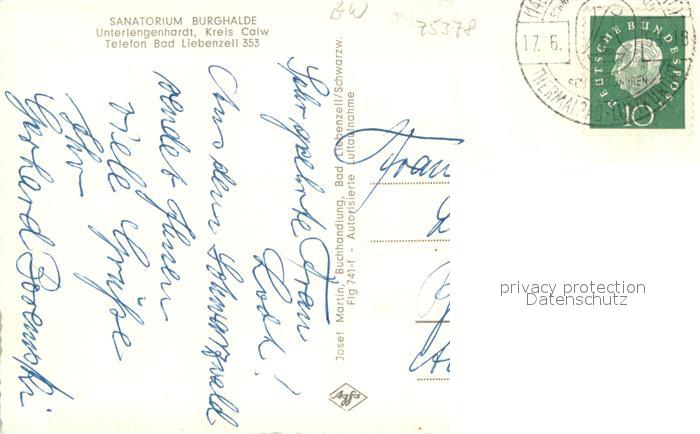 SANATORIUM BURGHALDE
Unterlengenhardt, Kreis Calw
Telefon Bad Liebenzell 353
BW
75378
17. 6.
18
DEUTSCHE BUNDESPOST
10
Sehr geehrte Frau
Aus dem Schwarzwald
sendet Ihnen
viele Grüße
Ihr
Gerhard
Josef Martin, Buchhandlung, Bad Liebenzell/Schwarzw.
Flg 741-f - Autorisierte Luftaufnahme
Agfa
Frau
privacy protection
Datenschutz